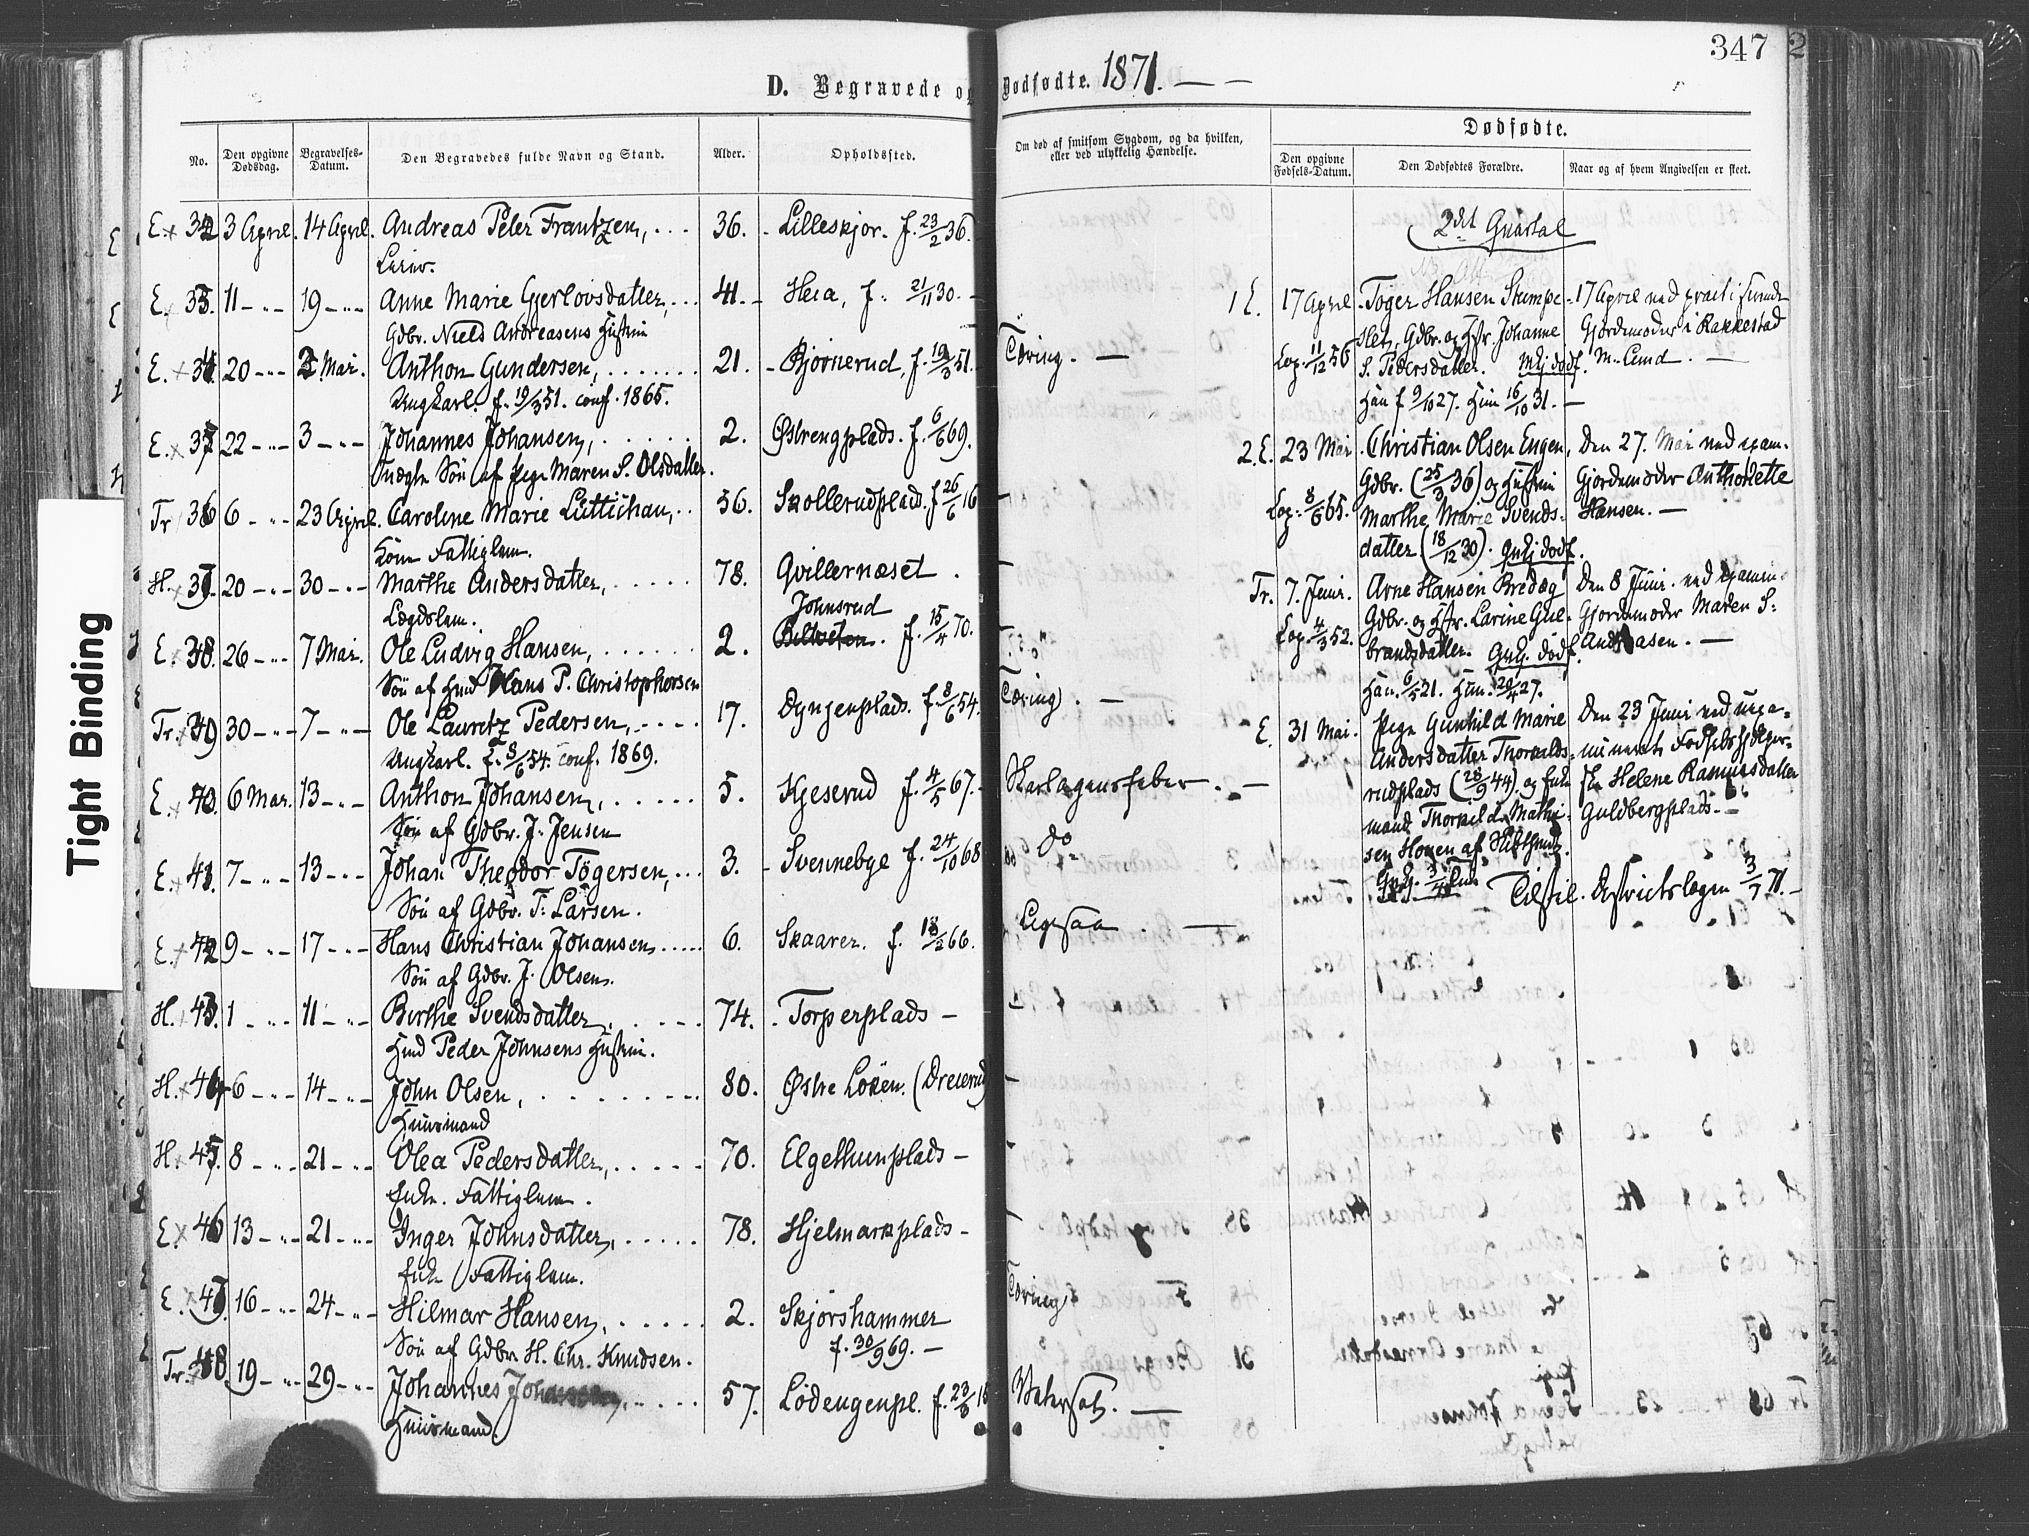 347 2
D. Begravede og Dødfødte. 1871. — -
No.
Den opgivne Dødsdag.
Begravelses-Datum.
Den Begravedes fulde Navn og Stand.
Alder.
Opholdssted.
Om død af smitsom Sygdom, og da hvilken, eller ved ulykkelig Hændelse.
Dødfødte.
Den opgivne Fødsels-Datum.
Den Dødfødtes Forældre.
Naar og af hvem Angivelsen er skeet.
E. 32 3 April. 14 April. Andreas Peter Frantzen, ... 36. Lilleskjor. f. 23/2 36.
E. 33. 11 - „ - 19 - „ - Anne Marie Gjerlovsdatter, ... 41. - Heia, f. 21/11 30. -
Gdbr. Niels Andreasens Hustru
E. 34 20 - „ - 2 Mai. Anthon Gundersen, ... 21. - Bjørnerud, f. 19/3 51. Tæring. —
Ungkarl. f. 19/3 51. conf. 1865.
E. 35 22 - „ - 3 - „ - Johannes Johansen, ... 2. Østrengplads. f. 6/6 69.
uægte Søn af Pige Maren S. Olsdatter.
Tr 36 6 - „ - 23 April. Caroline Marie Lüttichau, .. 56. Skollerudplad. f 26/6 16 -
Fattiglem.
H. 37 20 - „ - 30 - „ - Marthe Andersdatter, ... 78. Gvillernæset . -
Lægdslem.
Johnsrud
E. 38. 26 - „ - 7 Mai. Ole Ludvig Hansen, ... 2. f. 15/4 70. -
Søn af Hmd Hans P. Christophersen
Tr. 39 30 - „ - 7 - „ - Ole Lauritz Pedersen, ... 17. Dyngenplads. f. 8/6 54. Tæring. —
Ungkarl. f. 8/6 54. conf. 1869.
E. 40. 6 Mai. 13 - „ - Anthon Johansen, ... 5. Kjeserud f. 4/5 67. - Skarlagensfeber. - —
Søn af Gdbr. J. Jensen
E. 41. 7 - „ - 13 - „ - Johan Theodor Tøgersen, ... 3. - Svennebye f. 24/10 68 do
Søn af Gdbr. T. Larsen.
E. 42 9 - „ - 17 - „ - Hans Christian Johansen, ... 6. Skaarer. f. 18/2 66. Ligesaa . —
Søn af Gdbr. J. Olsen.
H. 43. 1 - „ - 11 - „ - Berthe Svendsdatter, ... 74. - Torperplads - -
Hmd Peder Johnsens Hustru.
H. 44 6 - „ - 14 - „ - John Olsen, ... 80. Østre Løken. (Dreierud) -
Huusmand
H. 45. 8 - „ - 21 - „ - Olea Pedersdatter, ... 70. Elgethunplads - -
Enke. Fattiglem.
E. 46 13 - „ - 21 - „ - Inger Johnsdatter, ... 78. Hjelmarkplads - -
Enke Fattiglem.
E. 47 16 - „ - 24 - „ - Hilmar Hansen, ... 2. Skjørshammer Tæring
Søn af Gdbr H. Chr. Knudsen. f. 30/9 69. -
Tr. 48. 19 - „ - 29 - „ - Johannes Johansen, ... 57. Lødengenpl. f. 23/6 Vatersot. —
Huusmand.
2det Quartal
1 E. 17 April. Tøger Hansen Stumpe- 17 April ved
slet, Gdbr. og Hstr. Johanne Gjordemoder i Rakkestad
Cop. 11/12 56 S. Pedersdatter. M. Lund . —
Han f 9/10 27. Hun 16/10 31. —
2. E. 23 Mai. Christian Olsen Engen, Den 27. Mai ved exam.
Gdbr. (25/3 36) og Hustru Gjordemoder Anthonette
Cop. 8/6 65. Marthe Marie Svends- Hansen. —
datter (18/12 30).
Tr. 7. Juni. Arne Hansen Bredæg Den 8 Juni. ved examin.
Gdbr. og Hstr. Larine Gul- Gjordemoder Maren S.
Cop. 4/3 52. brandsdatter. Andreasen. —
Han. 6/5 21. Hun. 20/4 27.
E. 31 Mai. Pige Gunhild Marie Den 23 Juni ved uexa-
Andersdatter Thorkilds- mineret Fødselshjelper-
rudplads (28/9 44). og Enke- ske Helene Rasmusdatter
mand Thorkild Mathi- Guldbergplads. -
sen Houen af
Tilstil. Districtslægen 3/7 71. -
Tight Binding